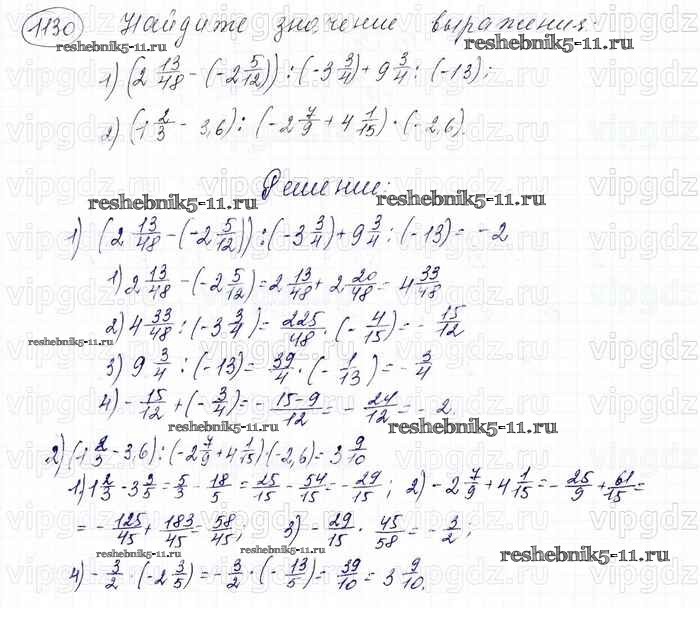 1130 Найдите значение выражения:
1) (2 13/48 - (-2 5/12)) : (-3 3/4) + 9 3/4 : (-13);
2) (1 2/3 - 3,6) : (-2 7/9 + 4 1/15) · (-2,6).
Решение:
reshebnik5-11.ru reshebnik5-11.ru
1) (2 13/48 - (-2 5/12)) : (-3 3/4) + 9 3/4 : (-13) = -2
1) 2 13/48 - (-2 5/12) = 2 13/48 + 2 20/48 = 4 33/48
2) 4 33/48 : (-3 3/4) = 225/48 · (-4/15) = -15/12
reshebnik5-11.ru
3) 9 3/4 : (-13) = 39/4 · (-1/13) = -3/4
4) -15/12 + (-3/4) = -15-9/12 = -24/12 = -2.
reshebnik5-11.ru
2) (1 2/3 - 3,6) : (-2 7/9 + 4 1/15) (-2,6) = 3 9/10
1) 1 2/3 - 3 3/5 = 5/3 - 18/5 = 25/15 - 54/15 = -29/15; 2) -2 7/9 + 4 1/15 = -25/9 + 61/15 =
= -125/45 + 183/45 = 58/45; 3) -29/15 · 45/58 = -3/2;
reshebnik5-11.ru reshebnik5-11.ru reshebnik5-11.ru
4) -3/2 · (-2 3/5) = -3/2 · (-13/5) = 39/10 = 3 9/10.